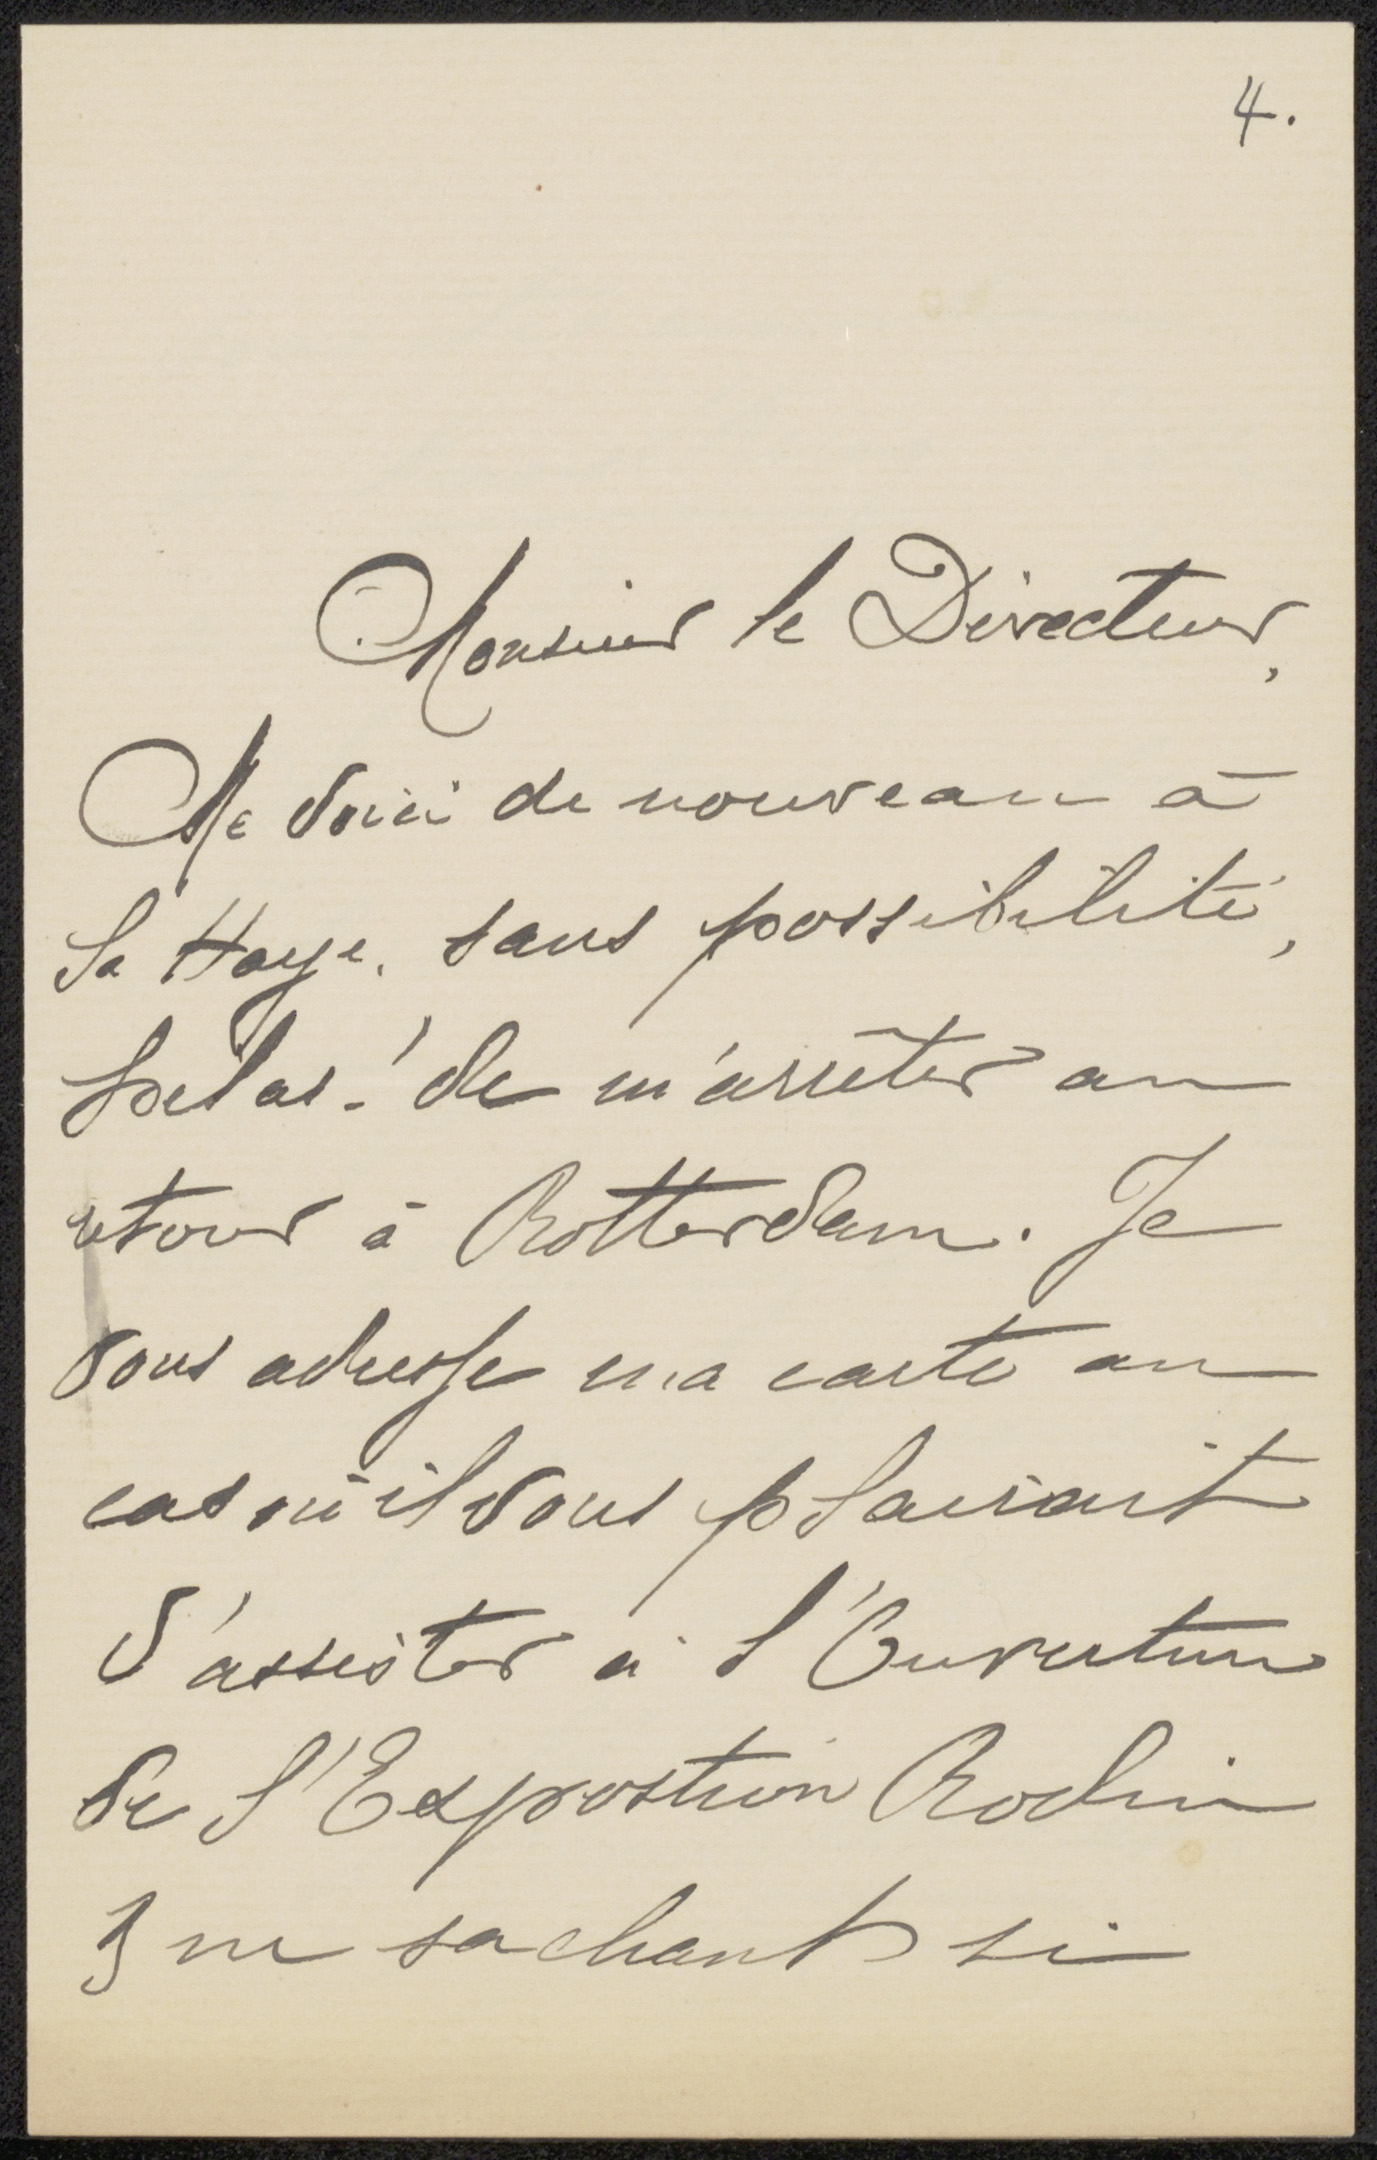 4.
Monsieur le Directeur,
Me voici de nouveau à
La Haye. sans possibilité,
hélas! de m'arrêter au
retour à Rotterdam. Je
vous adresse ma carte au
cas où il vous plairait
d'assister à l'Ouverture
de l'Exposition Rodin
ne sachant si